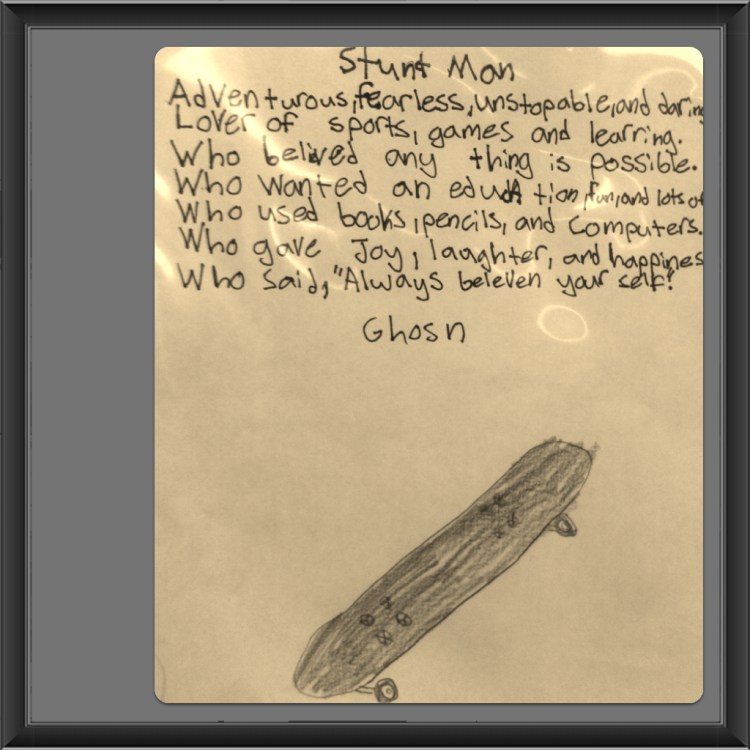 Stunt Man
Adventurous, fearless, unstopable, and daring
Lover of sports, games and learring.
Who belived any thing is possible.
Who wanted an education, fun, and lots of
Who used books, pencils, and computers.
Who gave Joy, laughter, and happines
Who said, "Always beleven your self."
Ghosn